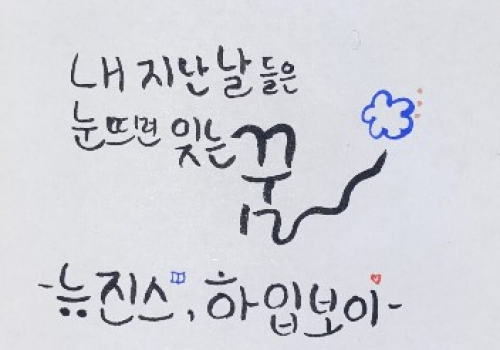 내 지난 날들은
눈뜨면 잊는 꿈
-뉴진스, 하입보이-